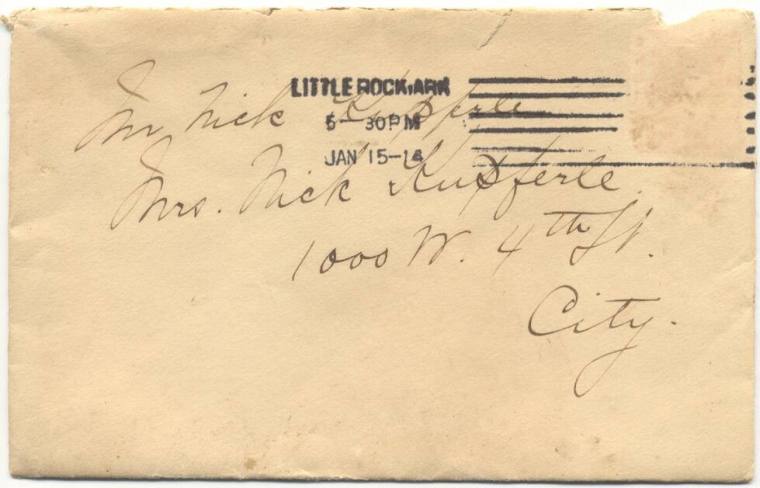 LITTLE ROCK, ARK
5- 30 PM
JAN 15-14
Mr Nick Kupferle
Mrs. Nick Kupferle.
1000 W. 4th St.
City.